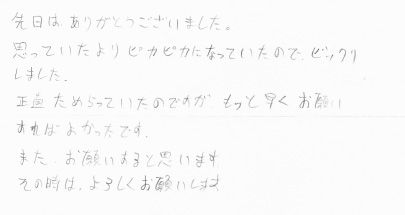 先日は、ありがとうございました。
思っていたよりピカピカになっていたので、ビックリ
しました。
正直ためらっていたのですが、もっと早くお願い
すればよかったです。
また、お願いすると思います
その時は、よろしくお願いします